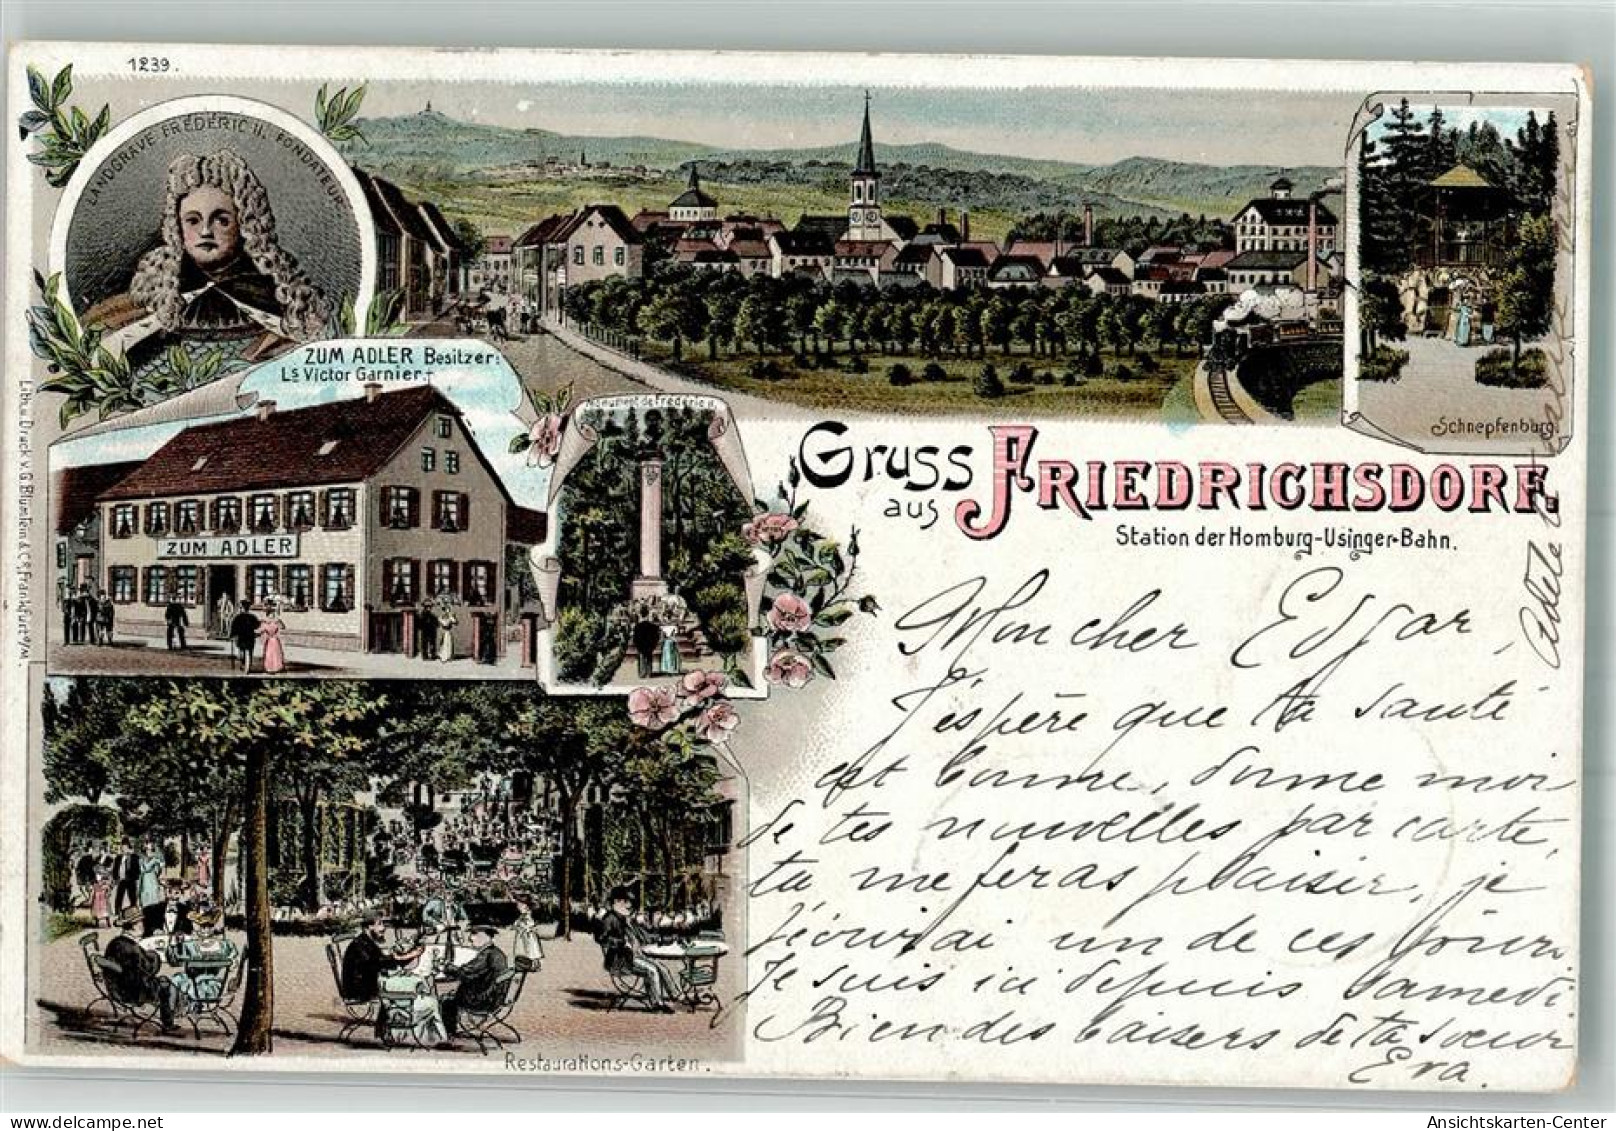 1239.
LANDGRAVE FRÉDÉRIC II. FONDATEUR.
ZUM ADLER Besitzer:
Ls Victor Garnier
ZUM ADLER
Monument de Frédéric II.
Schnepfenburg.
Gruss
aus FRIEDRICHSDORF.
Station der Homburg-Usinger-Bahn.
Restaurations-Garten.
Lith. u. Druck v. G. Blümlein & Co. Frankfurt a/M.
Mon cher Edgar,
J'espère que ta santé
est bonne, donne moi
de tes nouvelles par carte,
tu me feras plaisir, je
t'écrirai un de ces jours.
Je suis ici depuis samedi
Bien des baisers de ta sœur
Eva.
Adele
delcampe.net
marlin
Ansichtskarten-Center